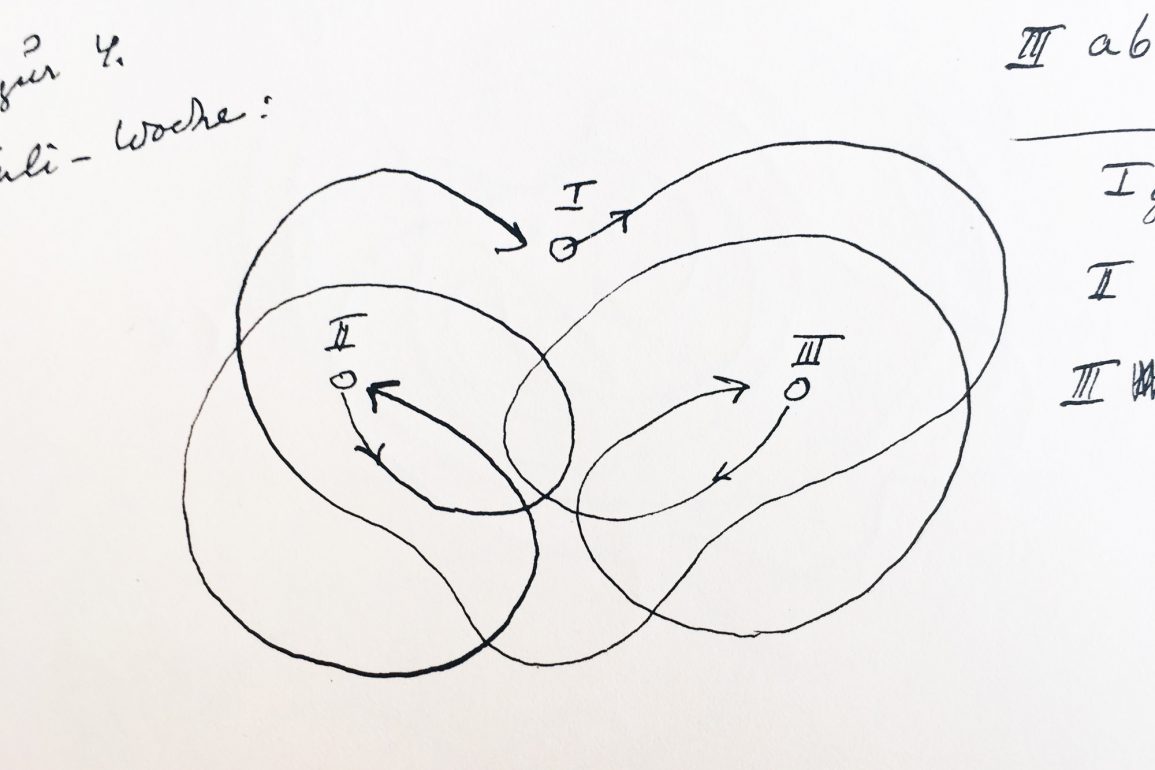 4.
Woche:
III ab
I
I
II
II
III
III